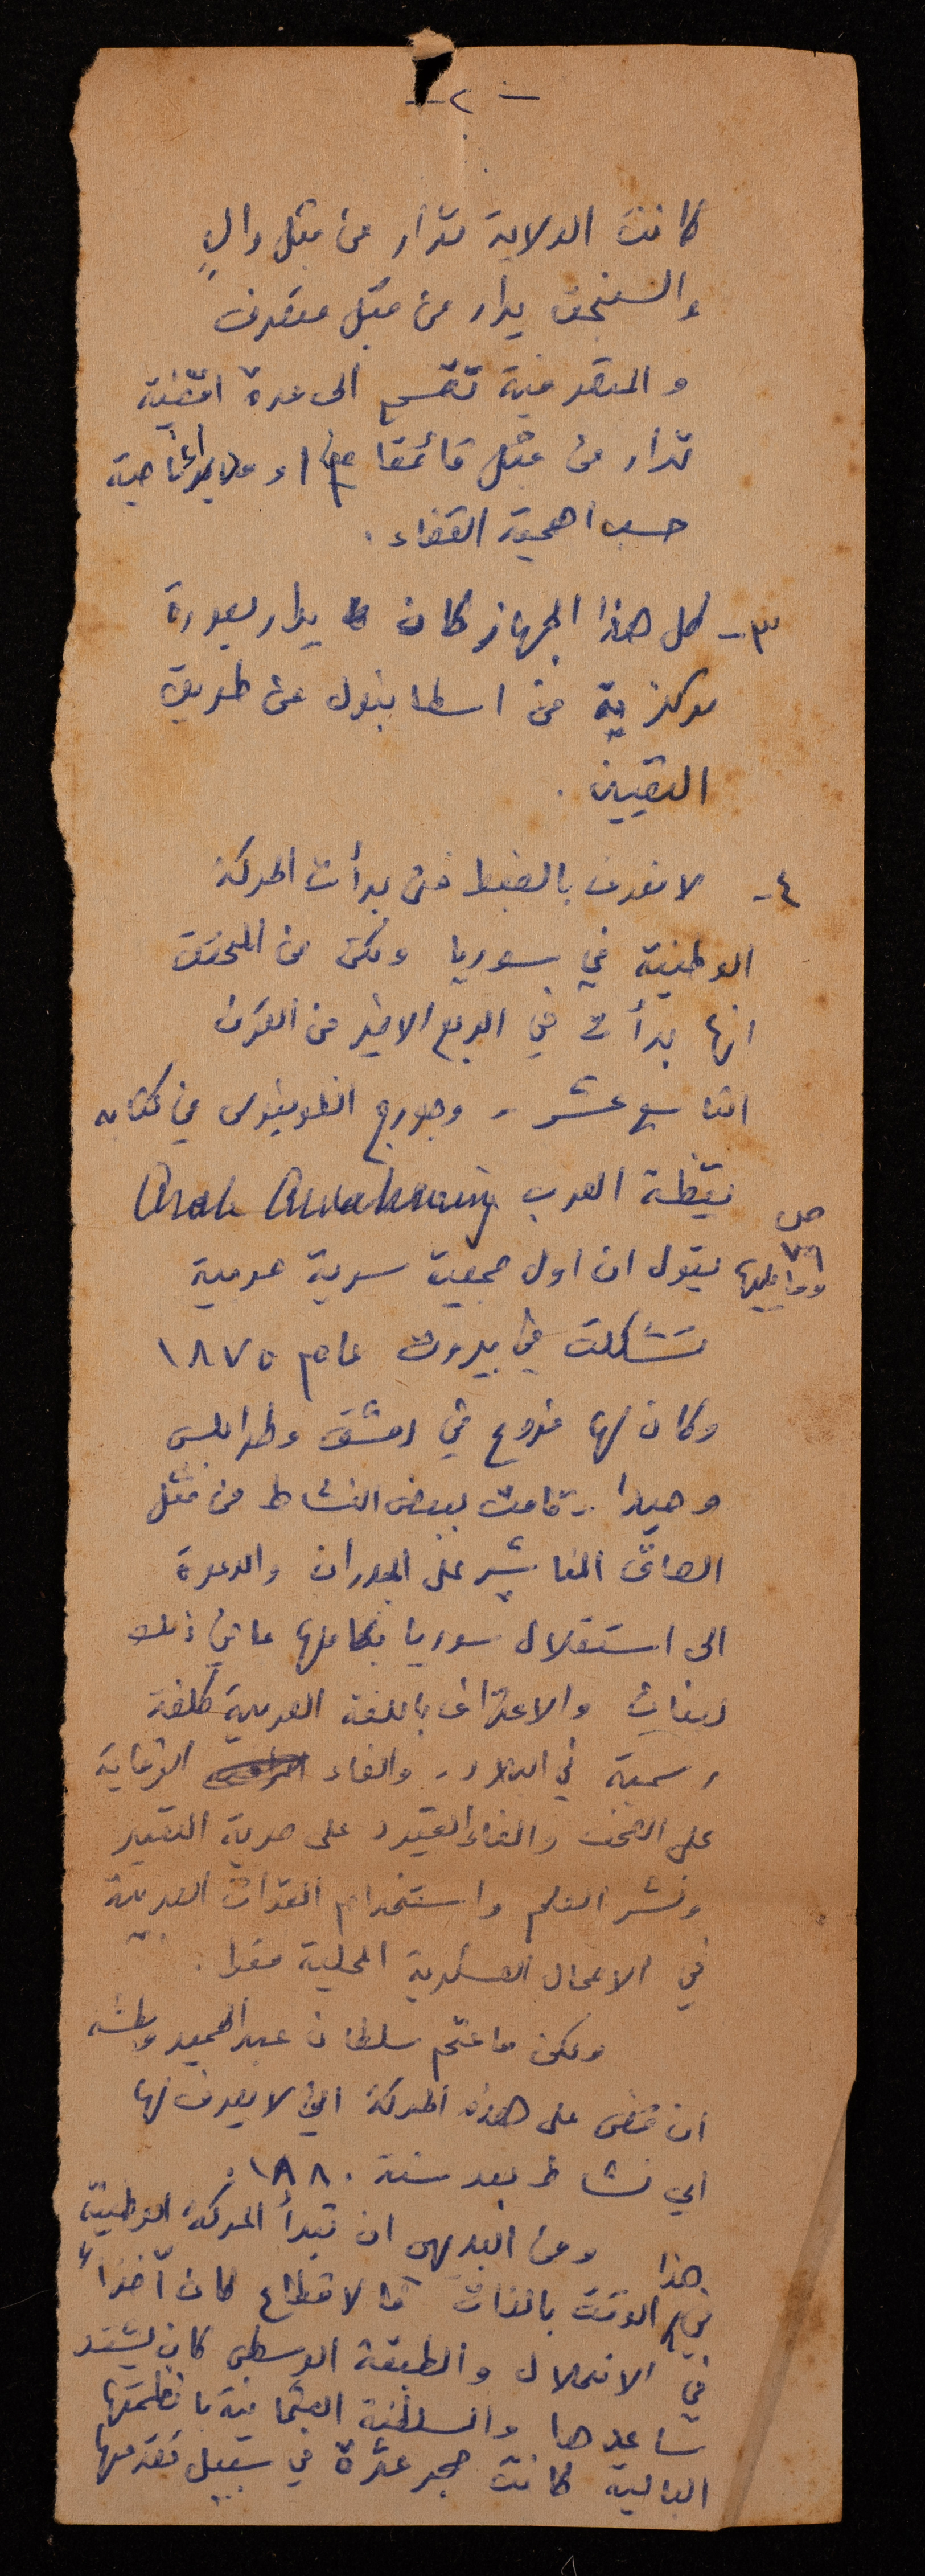 - ٢ -
كانت الولاية تدار من قبل والٍ
والسنجق يدار من قبل متصرف
والمتصرفية تقسم الى عدة اقضية
تدار من قبل قائمقام او مدير ناحية
حسب اهمية القضاء .
٣- كل هذا الجهاز كان يدار بصورة
مركزية من اسطانبول عن طريق
التعيين .
٤- لا نعرف بالضبط متى بدأت الحركة
الوطنية في سوريا ولكن من المحقق
انها بدأت في الربع الاخير من القرن
التاسع عشر - وجورج انطونيوس في كتابه
يقظة العرب Arab Awakening
ص ٧٩ وما يليها
يقول ان اول جمعية سرية عربية
تشكلت في بيروت عام ١٨٧٥
وكان لها فروع في دمشق وطرابلس
وصيدا - قامت ببعض النشاط من مثل
الصاق المناشير على الجدران والدعوة
الى استقلال سوريا بكاملها بما في ذلك
لبنان والاعتراف باللغة العربية كلغة
رسمية في البلاد - والغاء الرقابة
على الصحف والغاء القيود على حرية التعبير
ونشر العلم واستخدام القوات العربية
في الاعمال العسكرية المحلية فقط .
ولكن ما عتم سلطان عبد الحميد
ان قضى على هذه الحركة التي لا يعرف لها
اي نشاط بعد سنة ١٨٨٠ .
ومن البديهي ان تبدأ الحركة الوطنية
في هذا الوقت بالذات فالاقطاع كان آخذاً
في الانحلال والطبقة الوسطى كان يشتد
ساعدها والسلطنة العثمانية بانظمتها
البالية كانت حجر عثرة في سبيل تقدمها